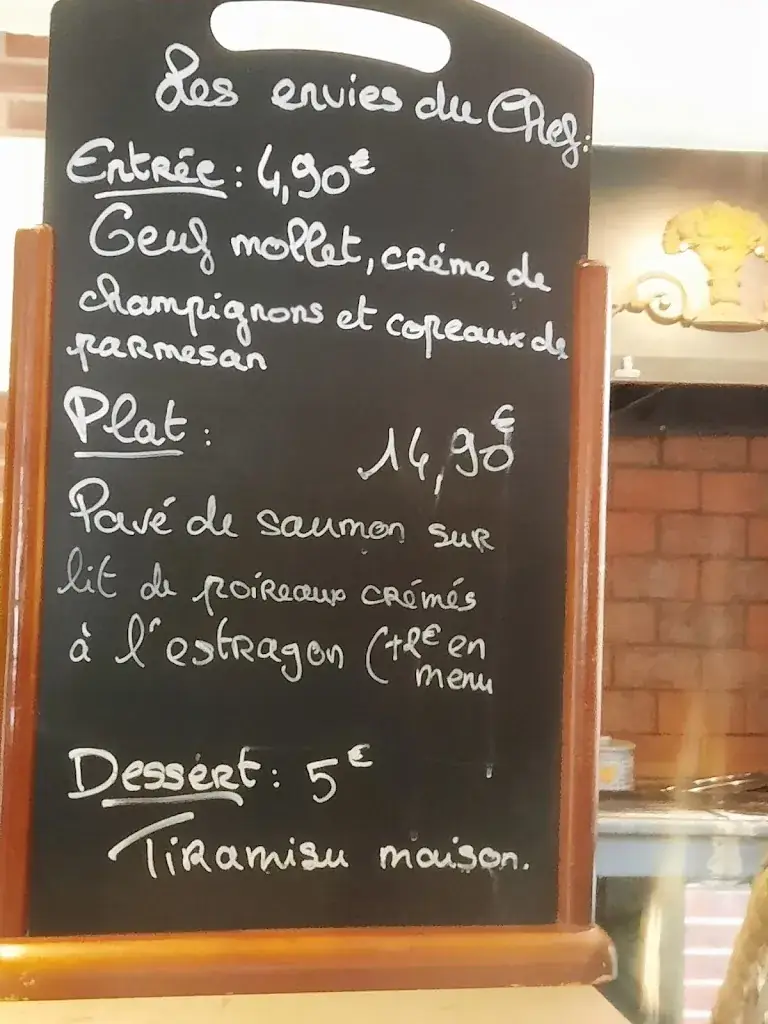 Les envies du Chef:
Entrée : 4,90€
Oeuf mollet, crème de
champignons et copeaux de
parmesan
Plat : 14,90€
Pavé de saumon sur
lit de poireaux crémés
à l'estragon (+2€ en
menu
Dessert : 5€
Tiramisu maison.